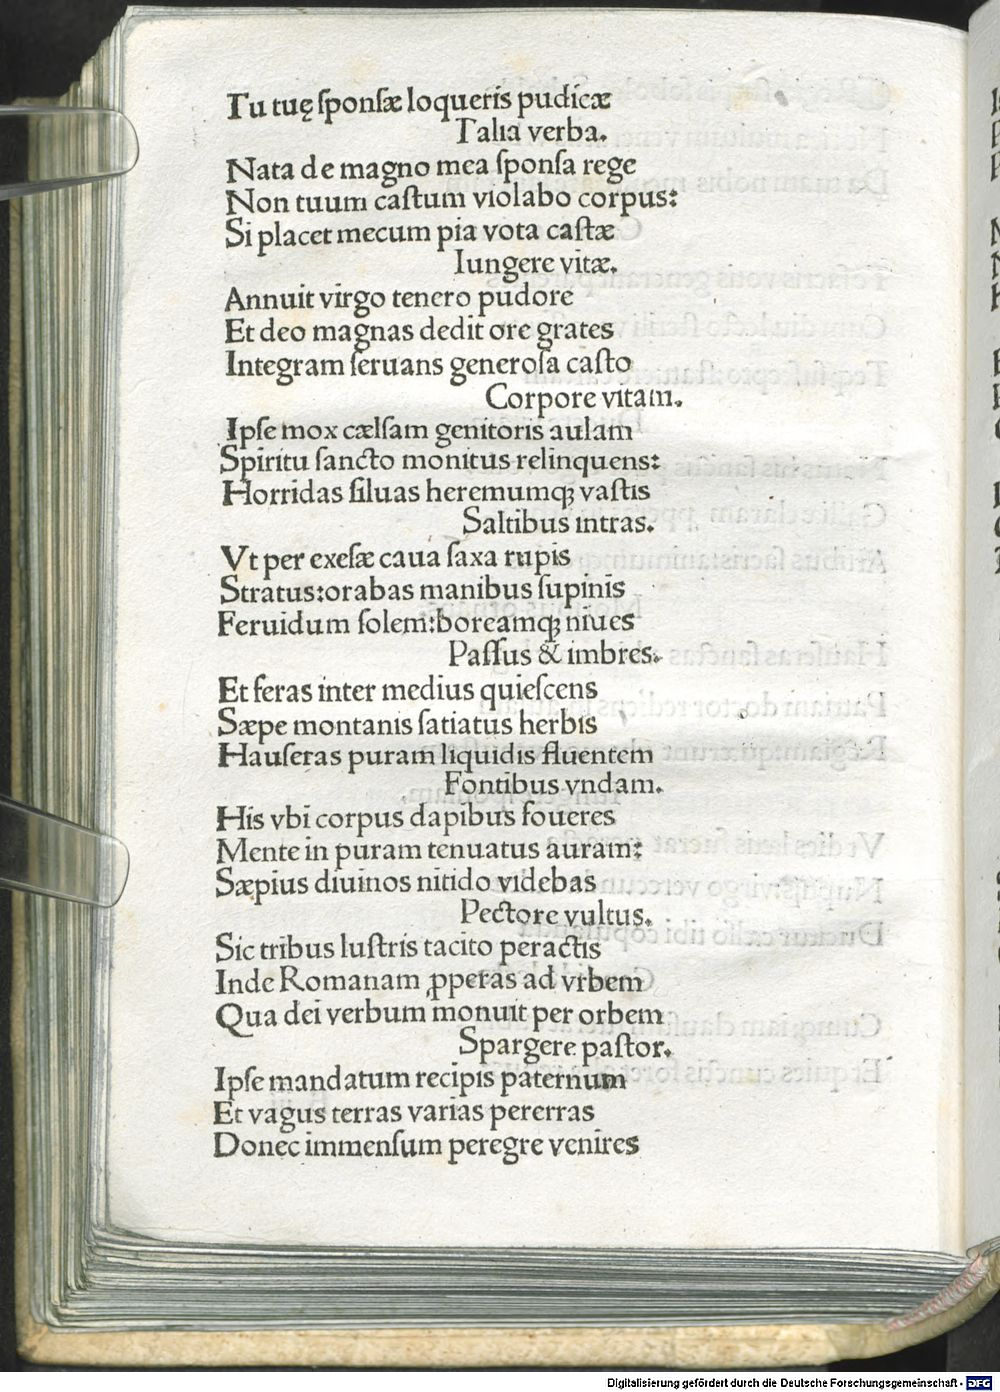 Tu tuę ſponſæ loqueris pudicæ
Talia verba.
Nata de magno mea ſponſa rege
Non tuum caſtum violabo corpus:
Si placet mecum pia vota caſtæ
Iungere vitæ.
Annuit virgo tenero pudore
Et deo magnas dedit ore grates
Integram ſeruans generoſa caſto
Corpore vitam.
Ipſe mox cælſam genitoris aulam
Spiritu ſancto monitus relinquens:
Horridas ſiluas heremumqꝫ vaſtis
Saltibus intras.
Vt per exeſæ caua ſaxa rupis
Stratus:orabas manibus ſupinis
Feruidum ſolem:boreamqꝫ niues
Paſſus & imbres.
Et feras inter medius quieſcens
Sæpe montanis ſatiatus herbis
Hauſeras puram liquidis fluentem
Fontibus vndam.
His vbi corpus dapibus foueres
Mente in puram tenuatus auram:
Sæpius diuinos nitido videbas
Pectore vultus.
Sic tribus luſtris tacito peractis
Inde Romanam ꝓperas ad vrbem
Qua dei verbum monuit per orbem
Spargere paſtor.
Ipſe mandatum recipis paternum
Et vagus terras varias pererras
Donec immenſum peregre venires
Digitalisierung gefördert durch die Deutsche Forschungsgemeinschaft - DFG